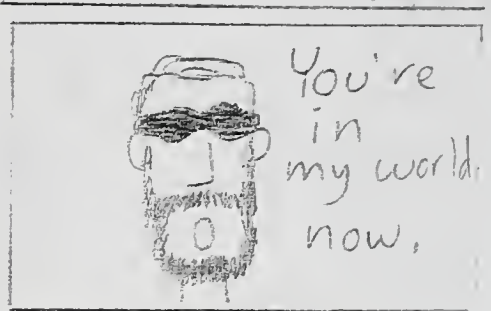 You're
in
my world.
now.